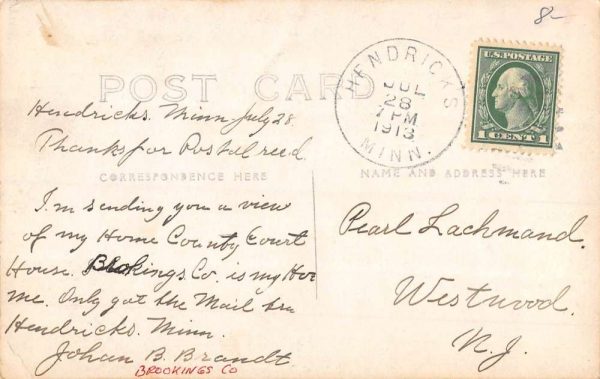 8-
U.S. POSTAGE
1 CENT 1
HENDRICKS
JUL
28
7 PM
1913
MINN.
POST CARD
Hendricks. Minn July 28
Thanks for Postal recd.
CORRESPONDENCE HERE
I.m sending you a view
of my Home County Court
House. Brokings Co. is my Hoe
me. Only got the Mail tru
Hendricks. Minn.
Johan B. Brandt
BROOKINGS CO
NAME AND ADDRESS HERE
Pearl Lachmand.
Westwood.
N. J.